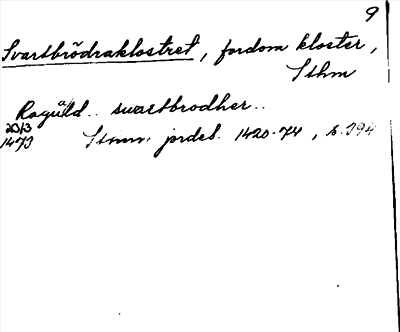 9
Svartbrödraklostret, fordom kloster,
Sthm
Raguald.. swartbrodher..
20/3
1473 Sthms jordeb. 1420-74, s. 394